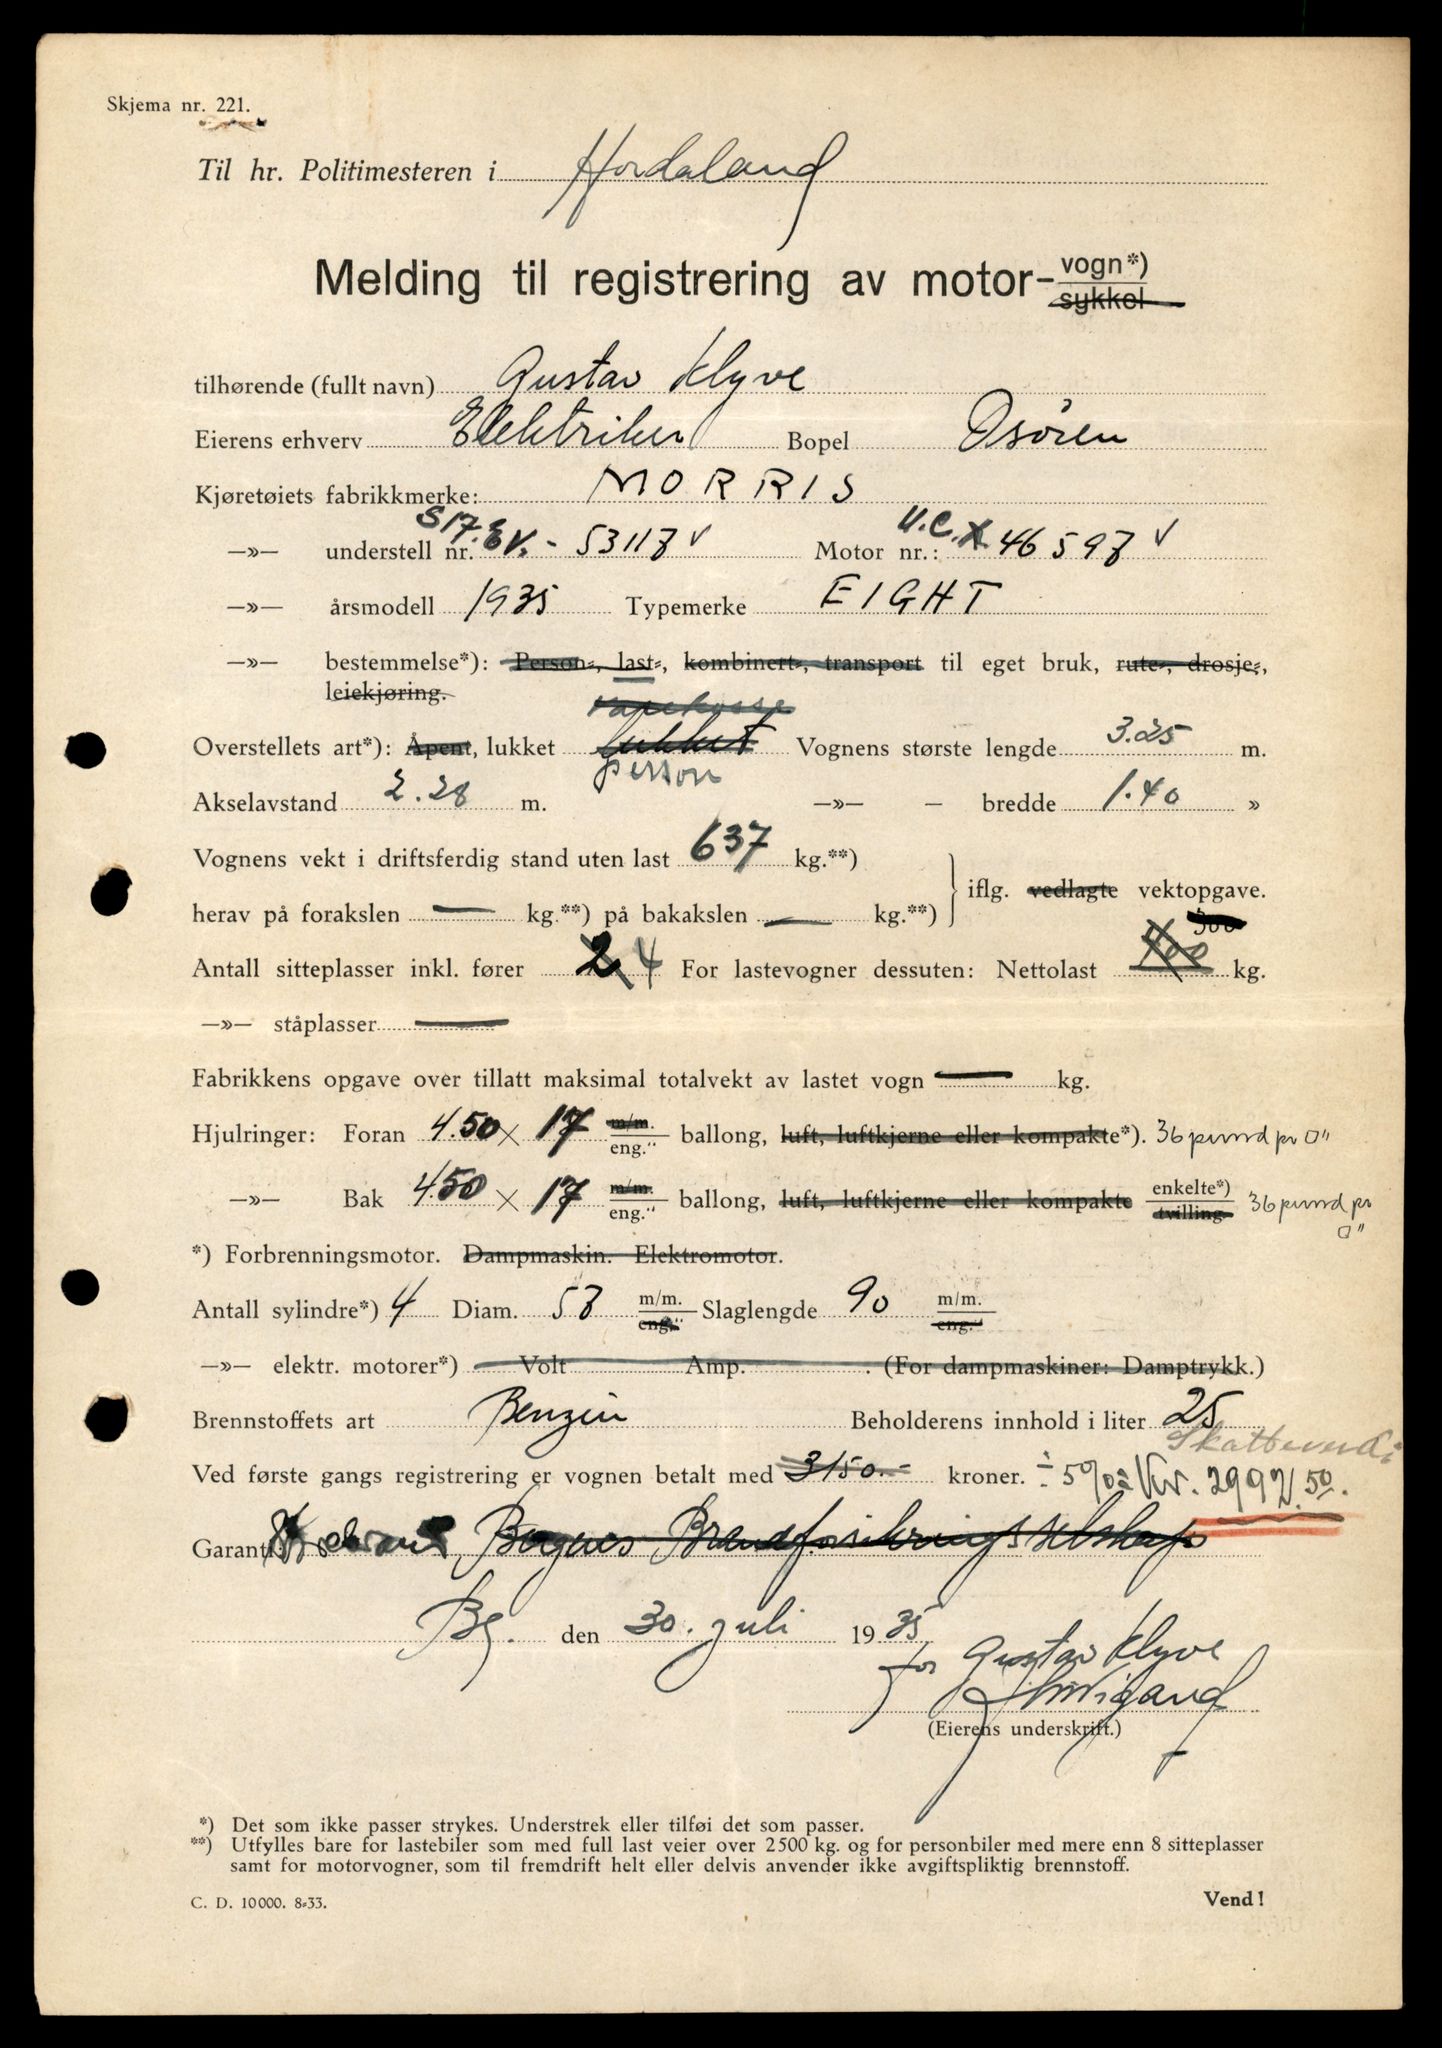 Skjema nr. 221.
Til hr. Politimesteren i Hordaland
Melding til registrering av motor- vogn*)
sykkel
tilhørende (fullt navn) Gustav Klyve
Eierens erhverv Elektriker Bopel Osøren
Kjøretøiets fabrikkmerke: MORRIS
S 17. E V.
U.C.
—»— understell nr. - 53118 v Motor nr.: 46598 v
—»— årsmodell 1935 Typemerke EIGHT
—»— bestemmelse*): Person-, last-, kombinert-, transport til eget bruk, rute-, drosje-,
leiekjøring.
varekasse
Overstellets art*): Åpent, lukket lukket Vognens største lengde 3.25 m.
person
Akselavstand 2.28 m. —»— – bredde 1.40 »
Vognens vekt i driftsferdig stand uten last 637 kg.**)
iflg. vedlagte vektopgave.
herav på forakslen — kg.**) på bakakslen — kg.**)
300
Antall sitteplasser inkl. fører 2 4 For lastevogner dessuten: Nettolast 400 kg.
—»— ståplasser —
Fabrikkens opgave over tillatt maksimal totalvekt av lastet vogn — kg.
Hjulringer: Foran 4.50 × 17 m/m. eng." ballong, luft, luftkjerne eller kompakte*). 36 pund pr □"
—»— Bak 4.50 × 17 m/m. eng." ballong, luft, luftkjerne eller kompakte enkelte*) tvilling. 36 pund pr
□"
*) Forbrenningsmotor. Dampmaskin. Elektromotor.
Antall sylindre*) 4 Diam. 58 m/m. eng." Slaglengde 90 m/m. eng."
—»— elektr. motorer*) Volt Amp. . (For dampmaskiner: Damptrykk.)
Brennstoffets art Benzin Beholderens innhold i liter 25
Skatteverdi:
Ved første gangs registrering er vognen betalt med 3150.- kroner. ÷ 5% = Kr. 2992.50.
Garanti: Bergens Brandforsikringsselskap
Bg. den 30. juli 1935
for Gustav Klyve
(Eierens underskrift.)
*) Det som ikke passer strykes. Understrek eller tilføi det som passer.
**) Utfylles bare for lastebiler som med full last veier over 2500 kg. og for personbiler med mere enn 8 sitteplasser
samt for motorvogner, som til fremdrift helt eller delvis anvender ikke avgiftspliktig brennstoff.
C. D. 10000. 8-33.
Vend!